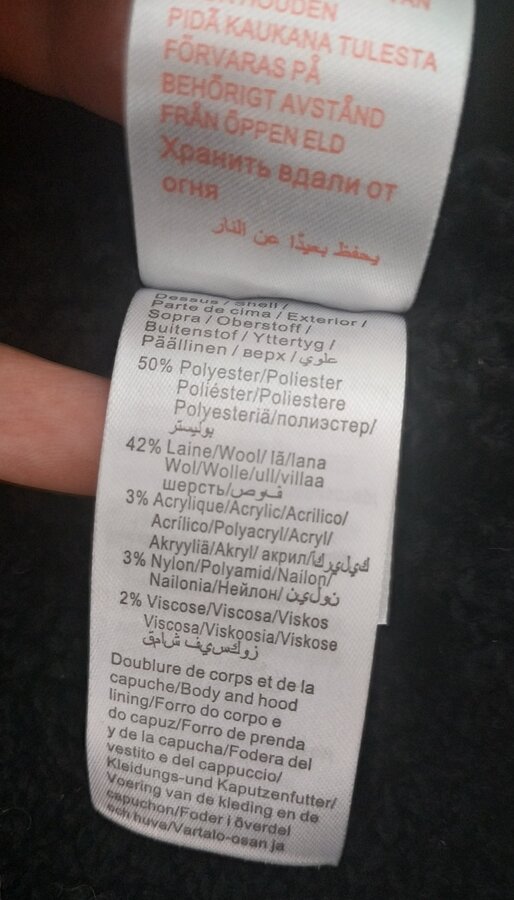 PIDÄ KAUKANA TULESTA
FÖRVARAS PÅ
BEHÖRIGT AVSTÅND
FRÅN ÖPPEN ELD
Хранить вдали от
огня
يحفظ بعيدًا عن النار
Dessus / Shell /
Parte de cima / Exterior /
Sopra / Oberstoff /
Buitenstof / Yttertyg /
Päällinen / верх / علوي
50% Polyester/Poliester
Poliéster/Poliestere
Polyesteriä/полиэстер/
بوليستر
42% Laine/Wool/ lã/lana
Wol/Wolle/ull/villaa
шерсть/صوف
3% Acrylique/Acrylic/Acrilico/
Acrílico/Polyacryl/Acryl/
Akryyliä/Akryl/ акрил/
3% Nylon/Polyamid/Nailon/
Nailonia/Нейлон/
2% Viscose/Viscosa/Viskos
Viscosa/Viskoosia/Viskose
Doublure de corps et de la
capuche/Body and hood
lining/Forro do corpo e
do capuz/Forro de prenda
y de la capucha/Fodera del
vestito e del cappuccio/
Kleidungs-und Kaputzenfutter/
Voering van de kleding en de
capuchon/Foder i överdel
och huva/Vartalo-osan ja